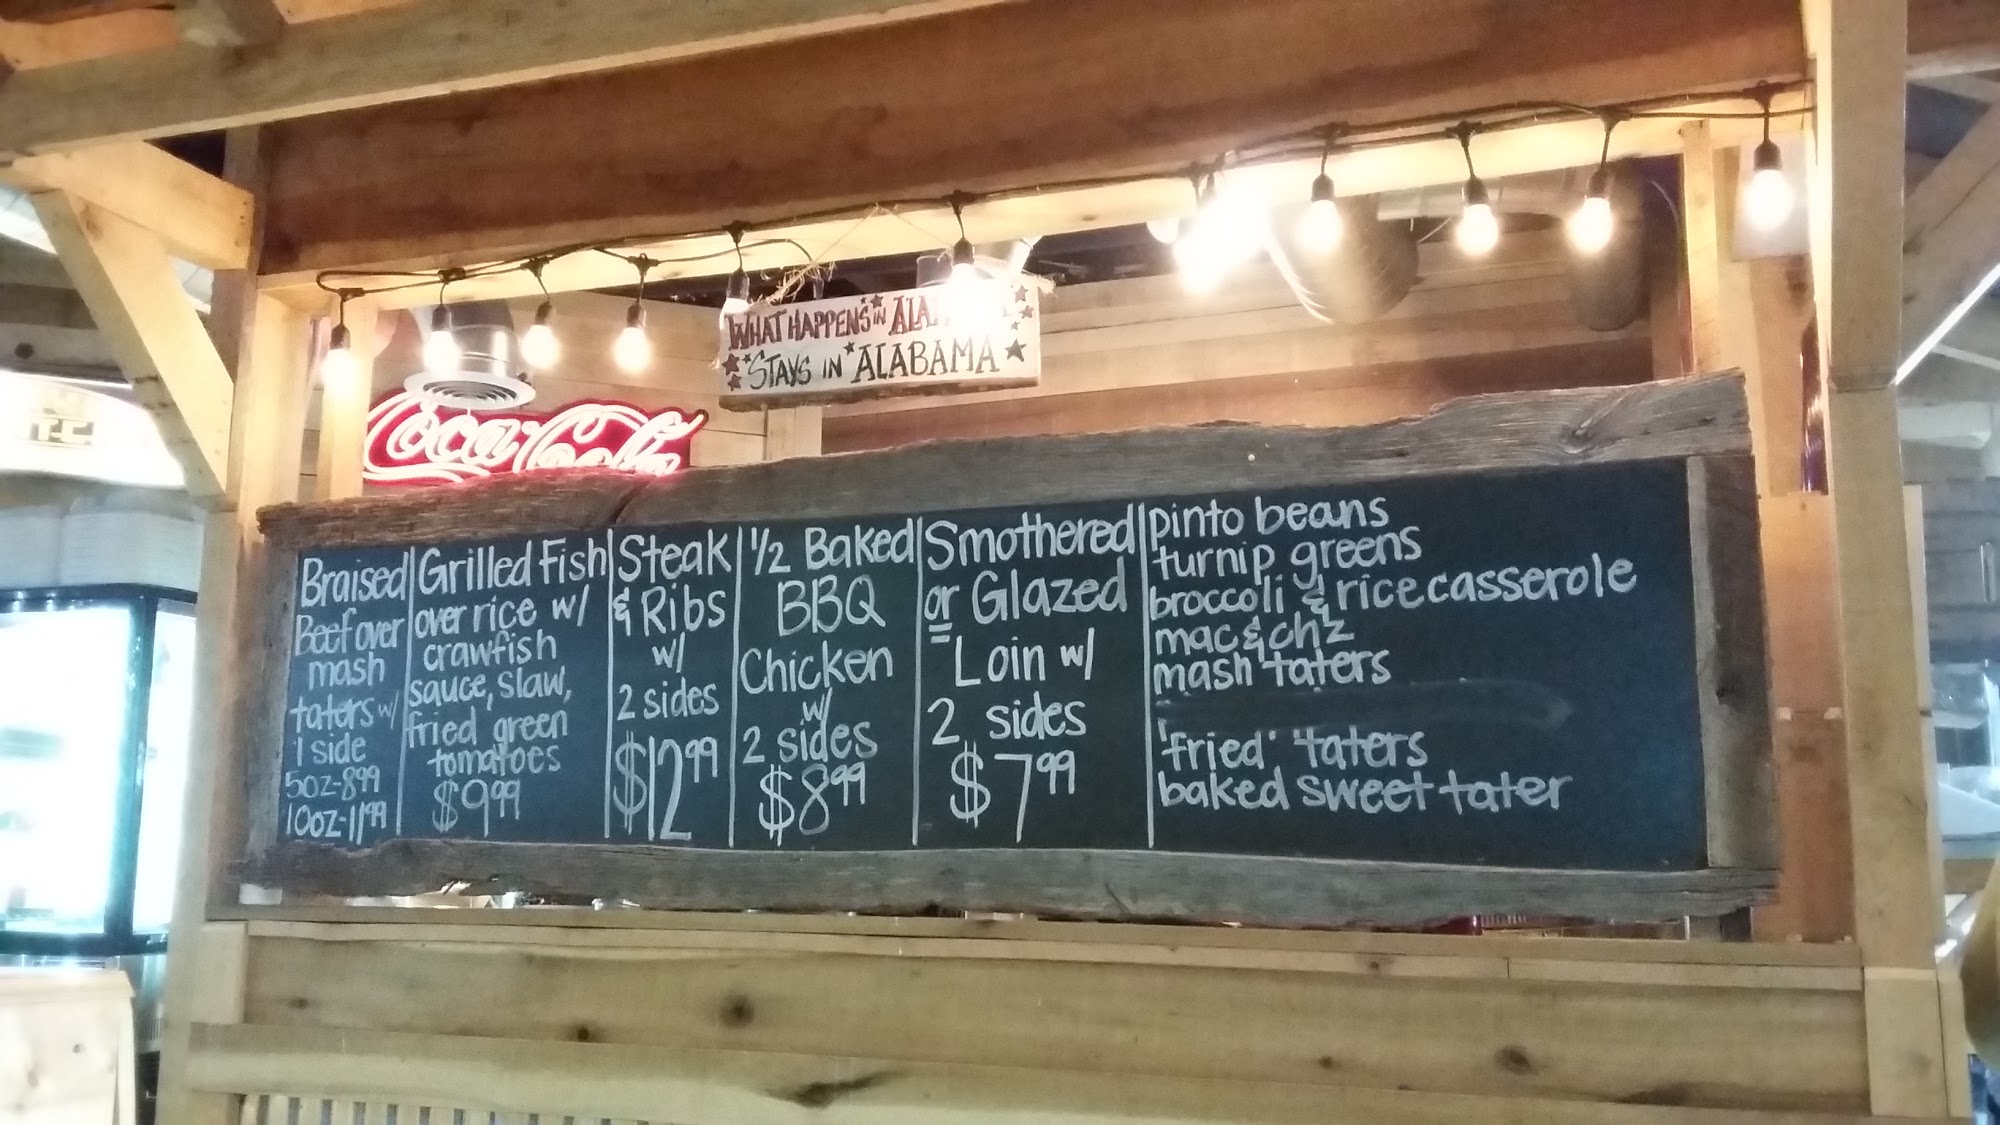 WHAT HAPPENS IN
STAYS IN ALABAMA
Coca-Cola
Braised
Beef over
mash
taters w/
1 side
5oz-8.99
10oz-11.99
Grilled Fish
over rice w/
crawfish
sauce, slaw,
fried green
tomatoes
$9.99
Steak
& Ribs
w/
2 sides
$12.99
1/2 Baked
BBQ
Chicken
w/
2 sides
$8.99
Smothered
or Glazed
Loin w/
2 sides
$7.99
pinto beans
turnip greens
broccoli & rice casserole
mac & ch'z
mash taters
'fried' 'taters
baked sweet tater